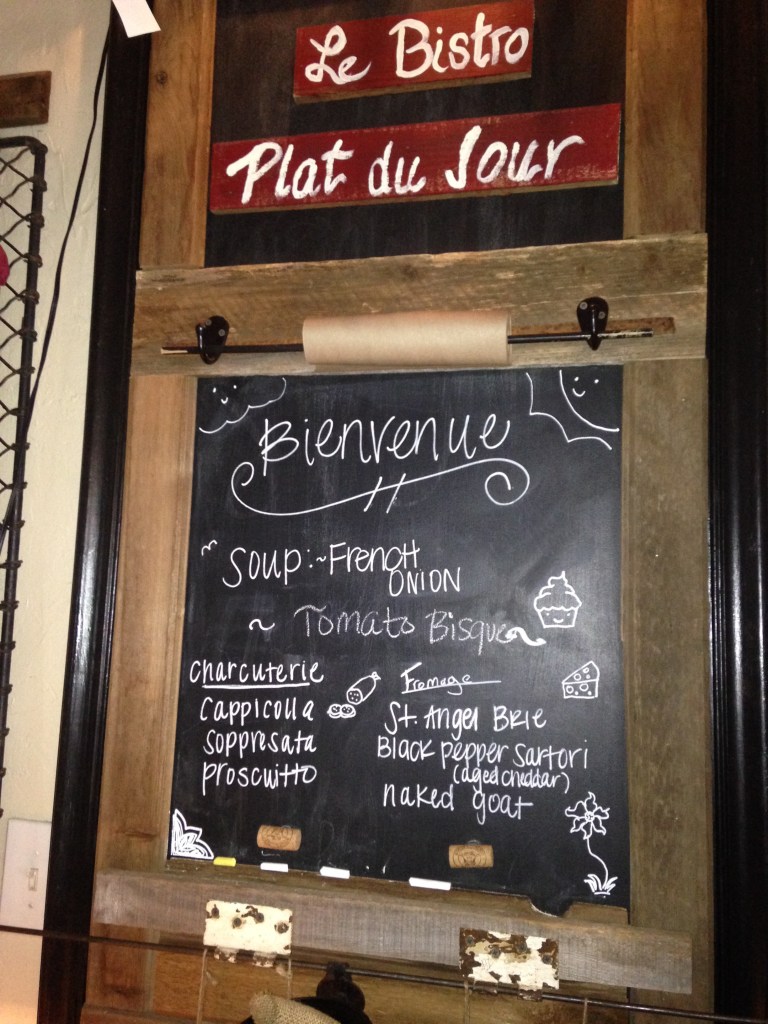 Le Bistro
Plat du Jour
Bienvenue
Soup:~French
ONION
~ Tomato Bisque~
Charcuterie
Cappicolla
Soppresata
Proscuitto
Fromage
St. Angel Brie
Black pepper Sartori
(aged cheddar)
naked goat